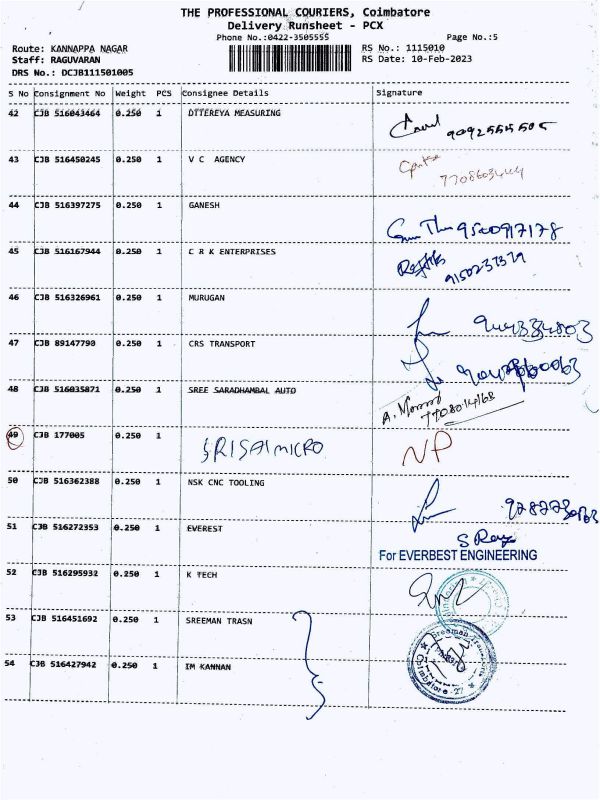 THE PROFESSIONAL COURIERS, Coimbatore
Delivery Runsheet - PCX
Phone No.:0422-3505555
Page No.:5
Route: KANNAPPA NAGAR
RS No.: 1115010
Staff: RAGUVARAN
RS Date: 10-Feb-2023
DRS No.: DCJB111501005
S No Consignment No Weight PCS Consignee Details Signature
42 CJB 516043464 0.250 1 DTTEREYA MEASURING
9092555505
43 CJB 516450245 0.250 1 V C AGENCY
44 CJB 516397275 0.250 1 GANESH
9500917178
45 CJB 516167944 0.250 1 C R K ENTERPRISES
46 CJB 516326961 0.250 1 MURUGAN
47 CJB 89147790 0.250 1 CRS TRANSPORT
48 CJB 516035871 0.250 1 SREE SARADHAMBAL AUTO
49 CJB 177005 0.250 1 SRISAI MICRO NP
50 CJB 516362388 0.250 1 NSK CNC TOOLING
51 CJB 516272353 0.250 1 EVEREST
For EVERBEST ENGINEERING
52 CJB 516295932 0.250 1 K TECH
53 CJB 516451692 0.250 1 SREEMAN TRASN
54 CJB 516427942 0.250 1 IM KANNAN